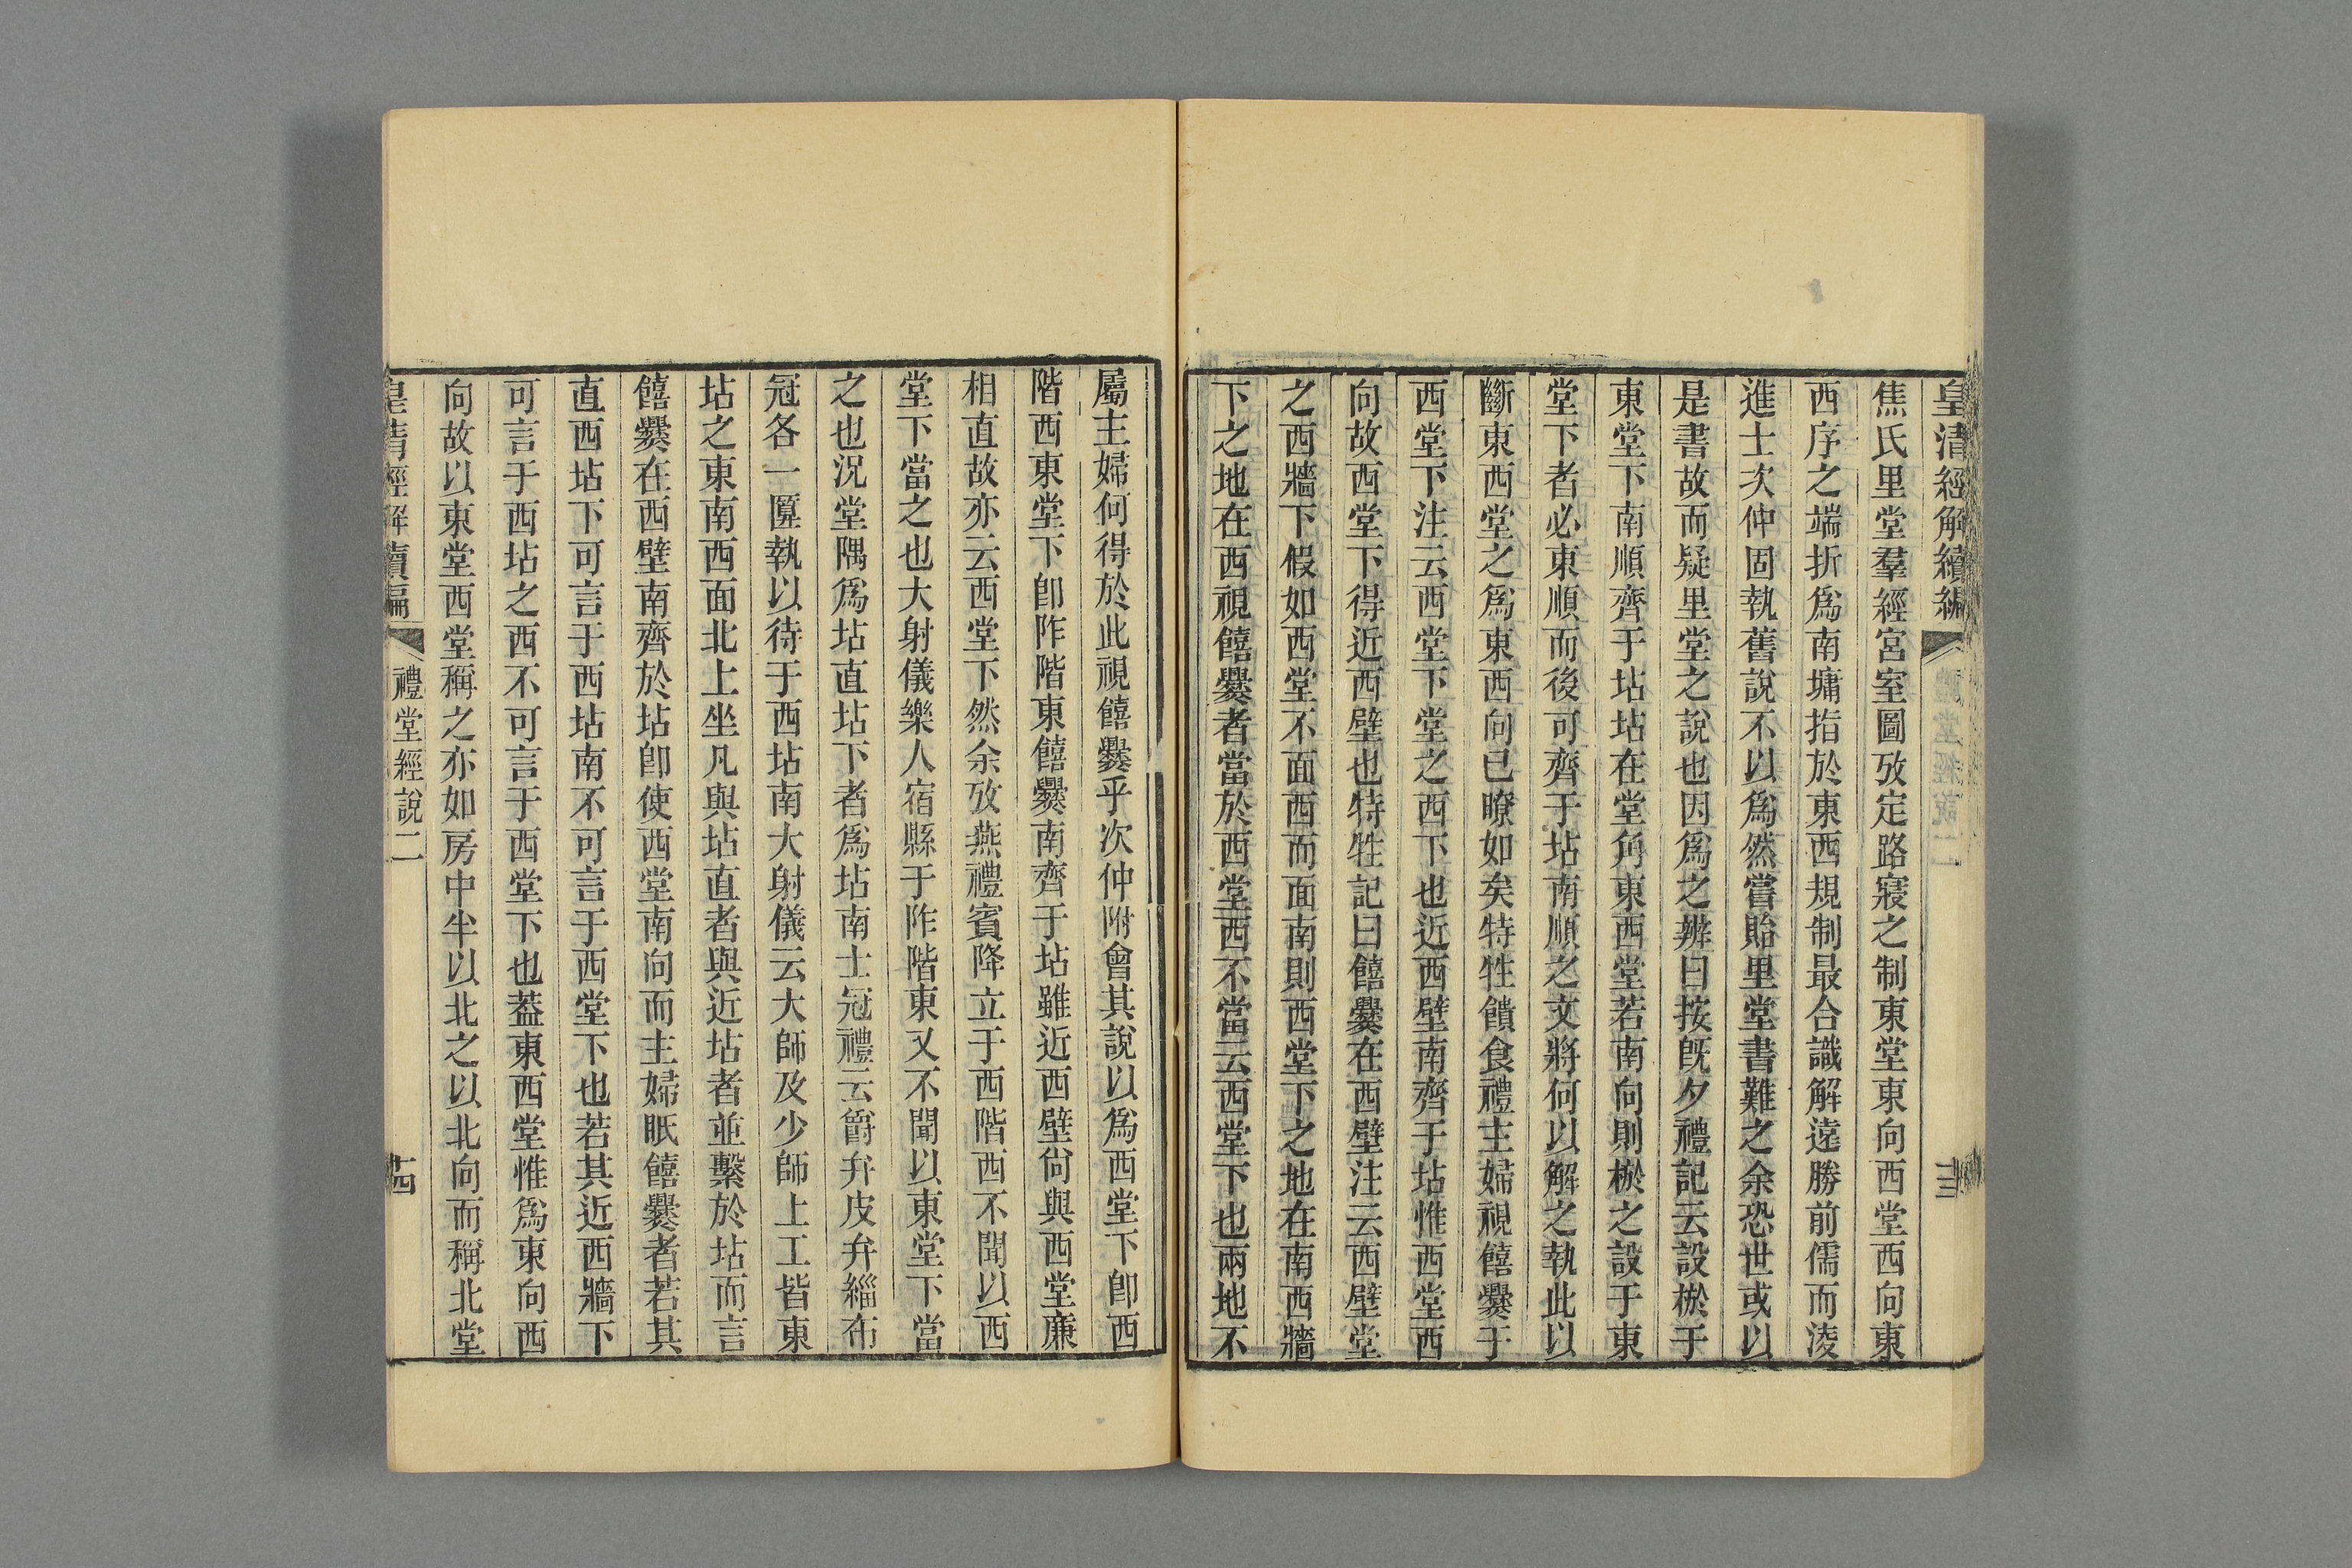 皇清經解續編
十三
焦氏里堂羣經宮室圖攷定路寢之制東堂東向西堂西向東
西序之端折爲南墉指於東西規制最合識解遠勝前儒而淩
進士次仲固執舊說不以爲然嘗貽里堂書難之余恐世或以
是書故而疑里堂之說也因爲之辨曰按旣夕禮記云設棜于
東堂下南順齊于坫坫在堂角東西堂若南向則棜之設于東
堂下者必東順而後可齊于坫南順之文將何以解之執此以
斷東西堂之爲東西向已瞭如矣特牲饋食禮主婦視饎爨于
西堂下注云西堂下堂之西下也近西壁南齊于坫惟西堂西
向故西堂下得近西壁也特牲記曰饎爨在西壁注云西壁堂
之西牆下假如西堂不面西而面南則西堂下之地在南西牆
下之地在西視饎爨者當於西堂西不當云西堂下也兩地不
屬主婦何得於此視饎爨乎次仲附會其說以爲西堂下卽西
階西東堂下卽阼階東饎爨南齊于坫雖近西壁尙與西堂廉
相直故亦云西堂下然余攷燕禮賓降立于西階西不聞以西
堂下當之也大射儀樂人宿縣于阼階東又不聞以東堂下當
之也況堂隅爲坫直坫下者爲坫南士冠禮云爵弁皮弁緇布
冠各一匴執以待于西坫南大射儀云大師及少師上工皆東
坫之東南西面北上坐凡與坫直者與近坫者並繫於坫而言
饎爨在西壁南齊於坫卽使西堂南向而主婦眂饎爨者若其
直西坫下可言于西坫南不可言于西堂下也若其近西牆下
可言于西坫之西不可言于西堂下也葢東西堂惟爲東向西
向故以東堂西堂稱之亦如房中半以北之以北向而稱北堂
皇清經解續編
禮堂經說二
十四